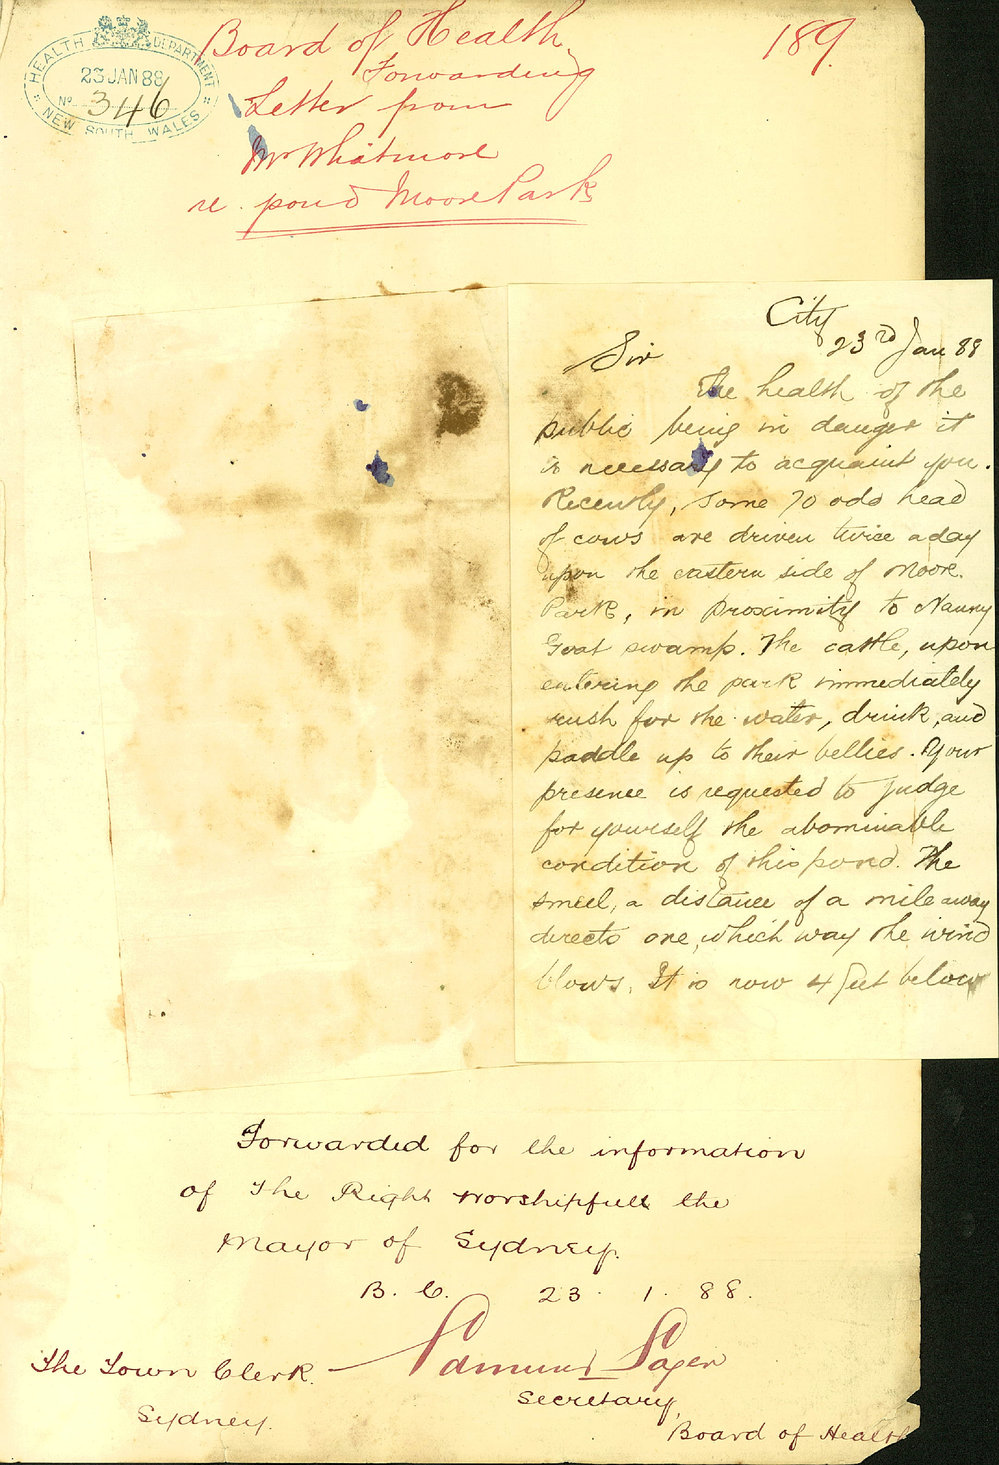 Board of Health
189.
Forwarding
Letter from
Mr Whatmore
re. pond Moore Park
HEALTH DEPARTMENT
23 JAN 88
No 346
NEW SOUTH WALES
City
23rd Jan 88
Sir
The health of the
public being in danger it
is necessary to acquaint you.
Recently, some 70 odd head
of cows are driven twice a day
upon the eastern side of Moore
Park, in proximity to Nanny
Goat swamp. The cattle, upon
entering the park immediately
rush for the water, drink, and
paddle up to their bellies. Your
presence is requested to judge
for yourself the abominable
condition of this pond. The
smell, a distance of a mile away
directs one, which way the wind
blows. It is now 4 feet below
Forwarded for the information
of The Right Worshipfull the
Mayor of Sydney.
B. C. 23. 1. 88.
Edmund Sager
The Town Clerk.
Secretary,
Sydney.
Board of Health